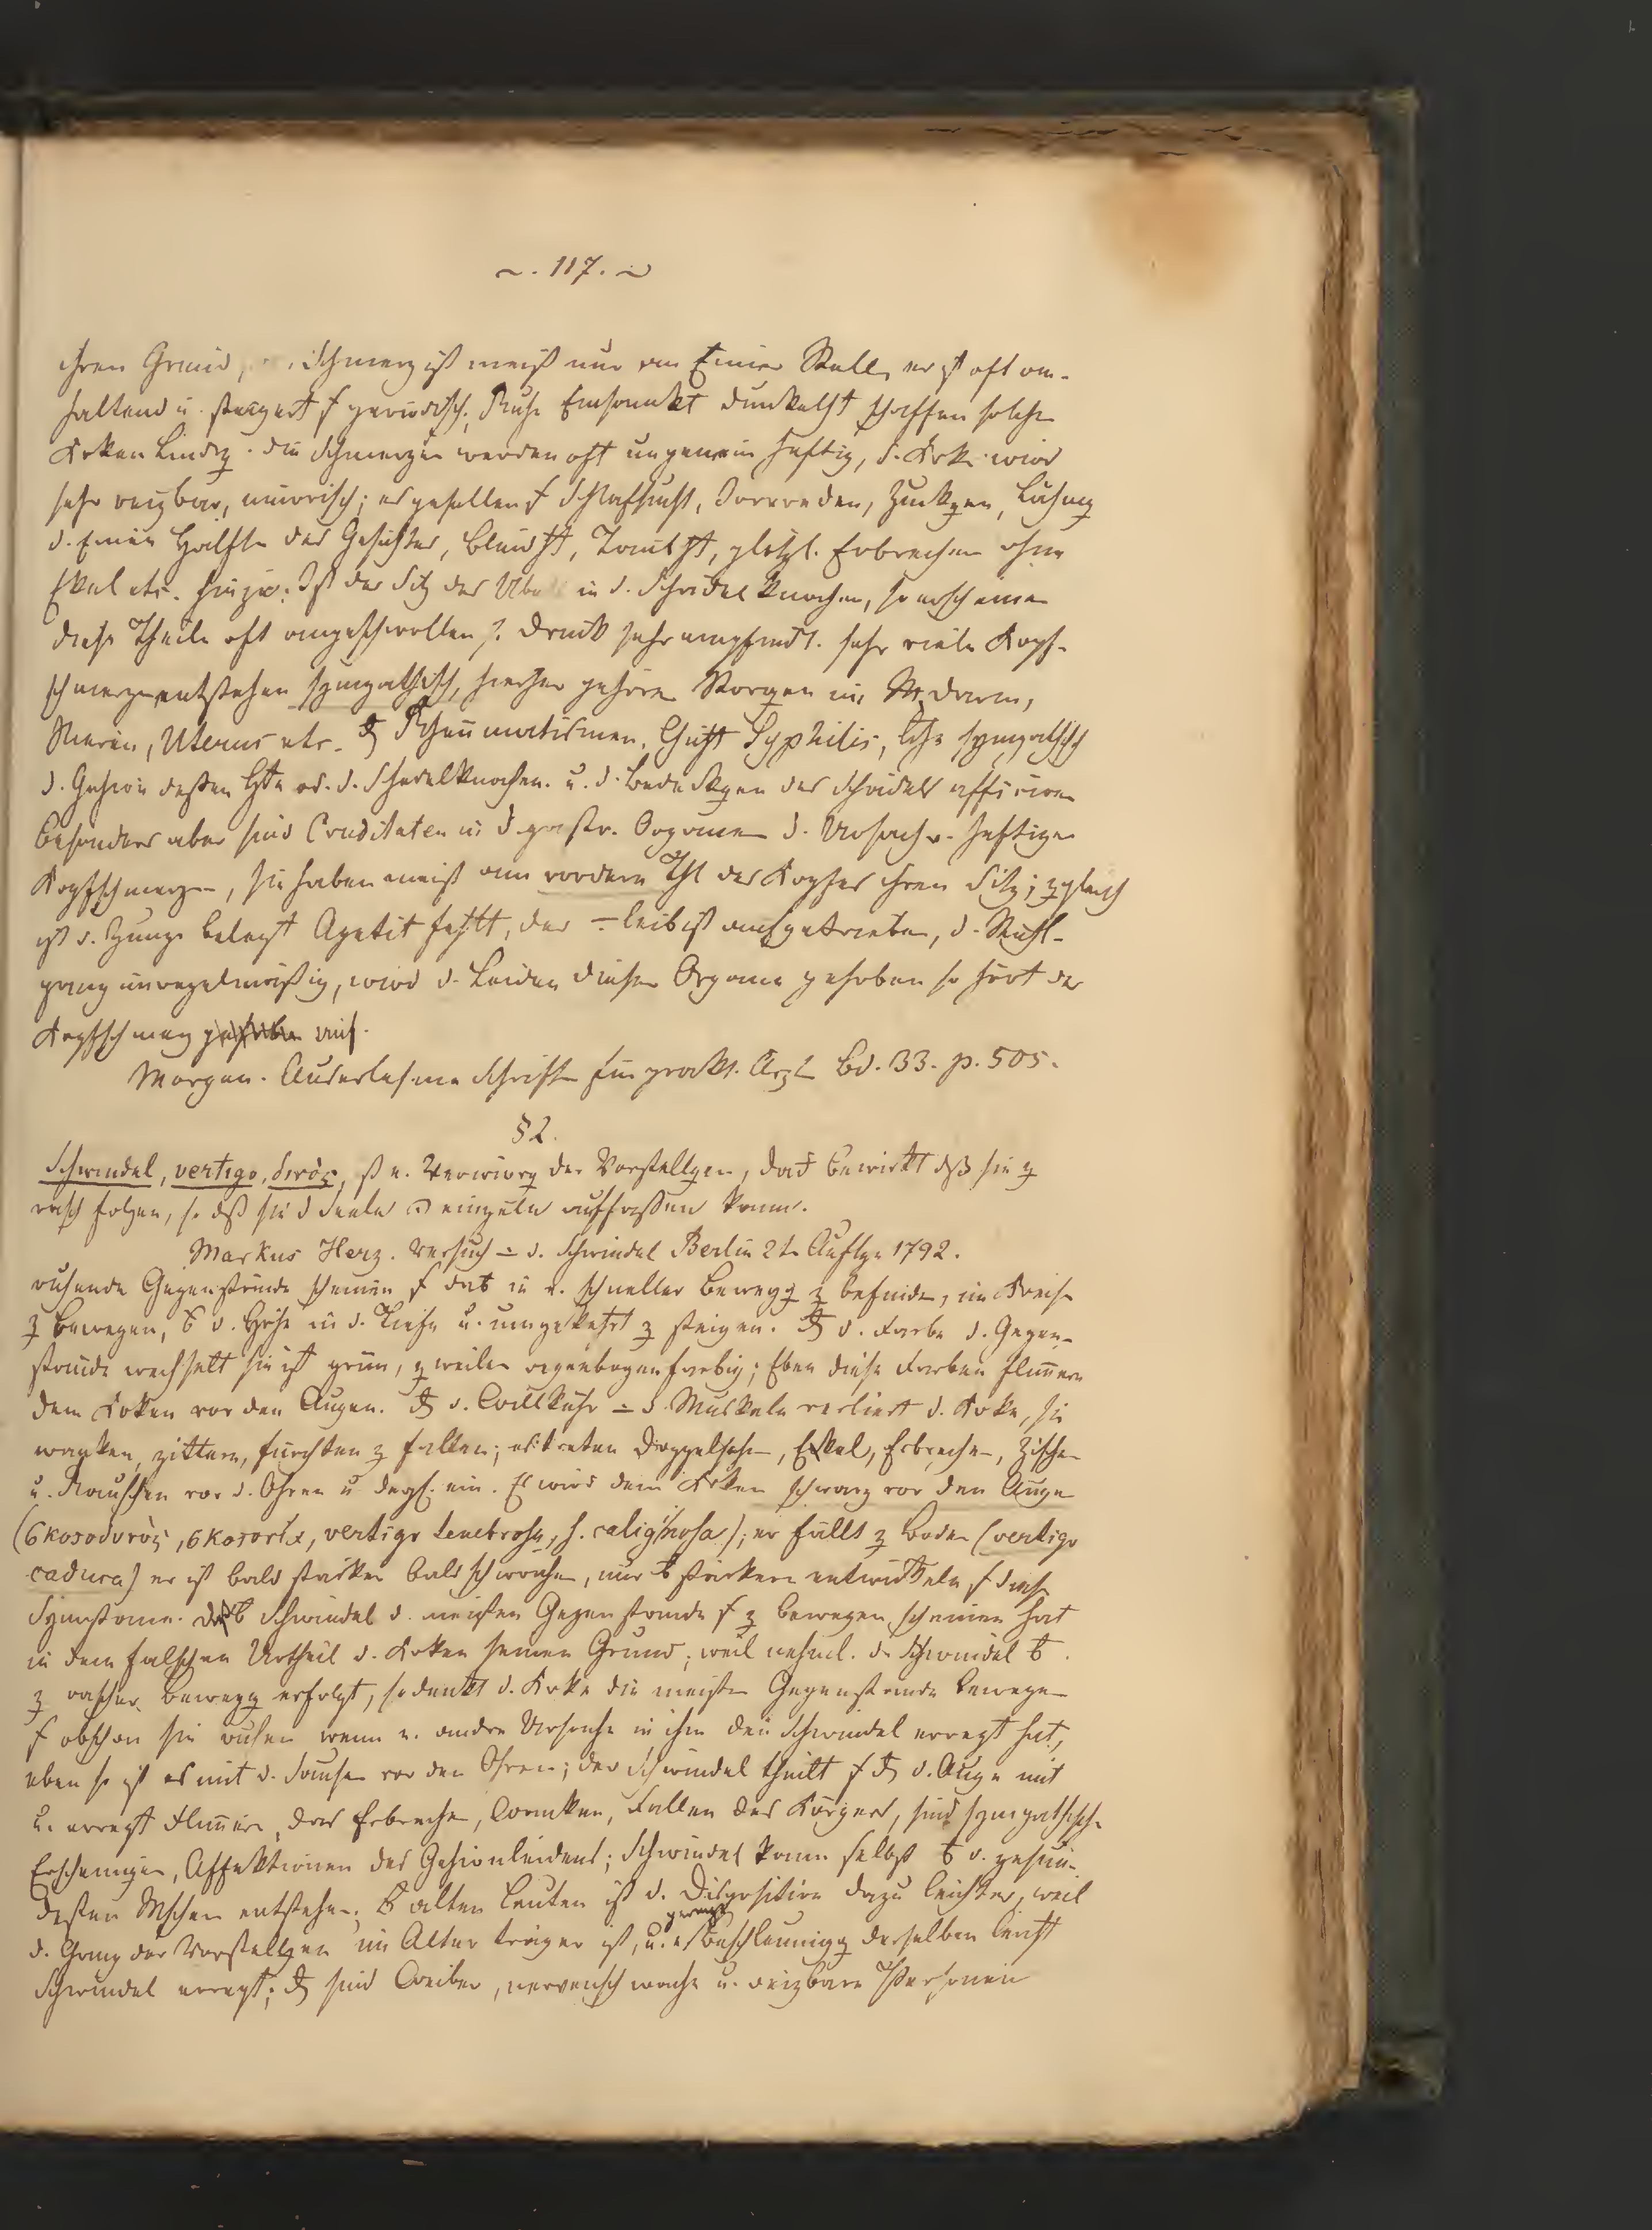 ~. 117. ~
ihren Grund, Schmerz ist meist nur an Einer Stelle, er ist oft an-
haltend u. steigert periodisch. Ruhe Einsamkt Dunkelht schaffen solchen
Krken Lindrg. die Schmerzen werden oft ungemein heftig, d. Krke wird
sehr reizbar, mürrisch; es gesellen Schlafsucht, Irrereden, Zuckgen, Lähmg
d. Einen Hälfte des Gesichtes, Blindht, Taubht, plötzl. Erbrechen ohne
Ekel etc. hinzu. Ist der Sitz des in d. Schädelknochen, so erscheinen
diese Theile oft angeschwollen Druck sehr empfindl. sehr viele Kopf-
schmerzen entstehen sympathisch, hierher gehören Storgen im M. darm,
Nieren, Uterus etc. Rheumatismen, Gicht Syphilis, sympathisch
d. Gehirn dessen Hte od. d. Schedelknochen. u. d. Bedeckgen des Schädels afficiren
besonders aber sind Cruditaten in d. gastr. Organen d. Ursach v. heftigen
Kopfschmerzen, sie haben meist am vordern Thl des Kopfes ihren Sitz; zgleich
ist d. Zunge belegt Apetit fehlt, der ÷leib ist aufgetrieben, d. Stuhl-
gang unregelmäßig, wird d. Leiden dieser Organe gehoben so hört der
Kopfschmerz gehoben auf.
Morgan. Auserlesene Schriften für prakt. Arzte Bd. 33. p. 505.
§ 2.
Schwindel, vertigo, δινὸς, ist e. Verwirrg der Vorstellgen, das bewirkt dß sie z
rasch folgen, so dß sie d Seele einzeln auffassen kann.
Markus Herz. Versuch ÷ d. Schwindel Berlin 2te Auflge 1792.
ruhende Gegenstände scheinen in e. schneller Bewegg z befinden, im Kreise
z bewegen, d. Höhe in d. Tiefe u. umgekehrt z steigen. d. Farbe d. Gegen-
stände wechselt sie ist grün, zweilen regenbogenfarbig; Eben diese Farben flimern
dem Krken vor den Augen. d. Willkühr ÷ d. Muskeln verliert d. Krke, sie
wanken, zittern, fürchten z fallen; es treten Doppelsehen, Ekel, Erbrechen, Zischen
u. Rauschen vor d. Ohren u dergl. ein. Es wird dem Krken schwarz vor den Augen
(σκοτοδινὸς, vertigo tenebrosa, s. caliginosa); er fällt z Boden (vertigo
caduca) er ist bald stärker bald schwächer, nur stärkern entwickeln diese
Symptome. Schwindel d. meisten Gegenstände z bewegen scheinen hat
in dem falschen Urtheil d. Krken seinen Grund; weil nehml. der Schwindel
z rascher Bewegg erfolgt, so denkt d. Krke die meisten Gegenstände bewegen
obschon sie ruhen wenn e. andre Ursache in ihm den Schwindel erregt hat,
eben so ist es mit d. Sausen vor den Ohren; der Schwindel theilt d. Auge mit
u. erregt Flimern, das Erbrechen, Wanken, Fallen des Körpers, sind sympathische
Erscheinugen, Affektionen des Gehirnleidens; Schwindel kann selbst d. gesün-
desten Mschen entstehen. alten Leuten ist d. Disposition dazu leichter, weil
d. Gang der Vorstellgen im Alter träger ist, u. Beschleunigg derselben leicht
Schwindel erregt; sind Weiber, nervenschwache u. reizbare Personen